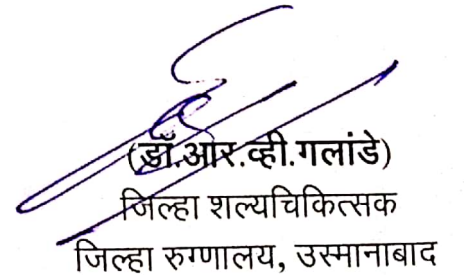 (डॉ.आर.व्ही.गलांडे)
जिल्हा शल्यचिकित्सक
जिल्हा रुग्णालय, उस्मानाबाद